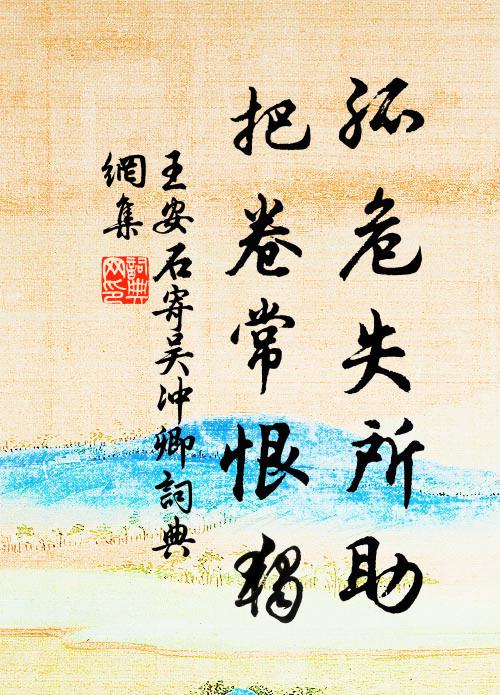 孤危失所助
把卷常恨獨
王安石寄吴冲卿詞典
網集
詞典網印